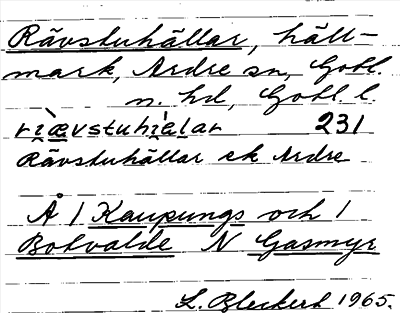 Rävstuhällar, häll-
mark, Ardre sn, Gotl.
n. hd, Gotl. l.
ri̯ævstuhi̯èlar 231
Rävstuhällar ek Ardre
Å 1 Kaupungs och 1
Botvalde N Gasmyr
L. Bleckert 1965.